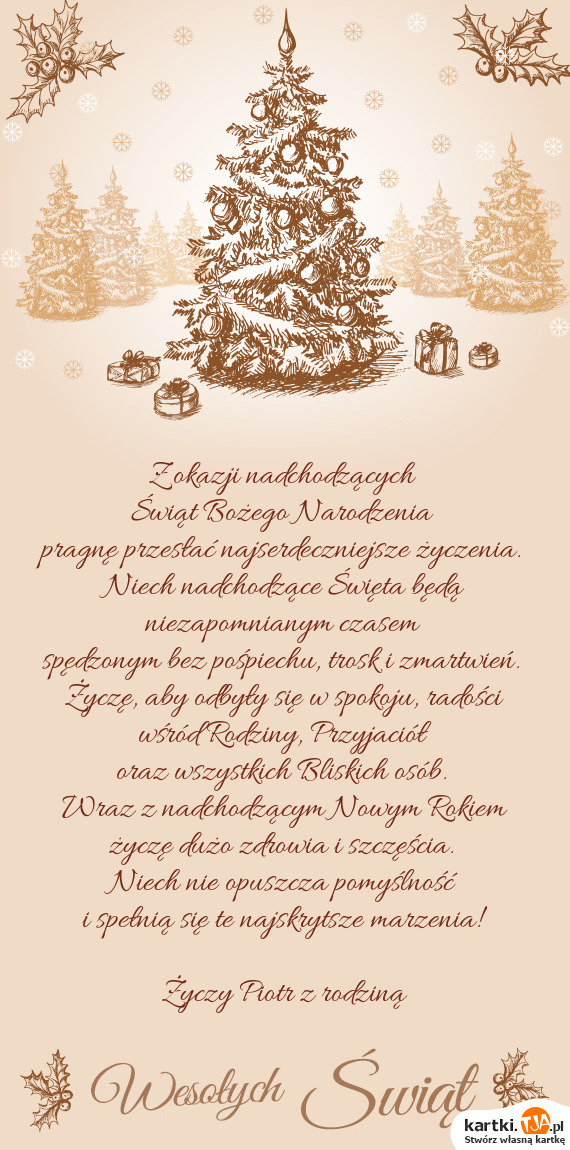 Z okazji nadchodzących
Świąt Bożego Narodzenia
pragnę przesłać najserdeczniejsze życzenia.
Niech nadchodzące Święta będą
niezapomnianym czasem
spędzonym bez pośpiechu, trosk i zmartwień.
Życzę, aby odbyły się w spokoju, radości
wśród Rodziny, Przyjaciół
oraz wszystkich Bliskich osób.
Wraz z nadchodzącym Nowym Rokiem
życzę dużo zdrowia i szczęścia.
Niech nie opuszcza pomyślność
i spełnią się te najskrytsze marzenia!
Życzy Piotr z rodziną
Wesołych Świąt
kartki.TJA.pl
Stwórz własną kartkę